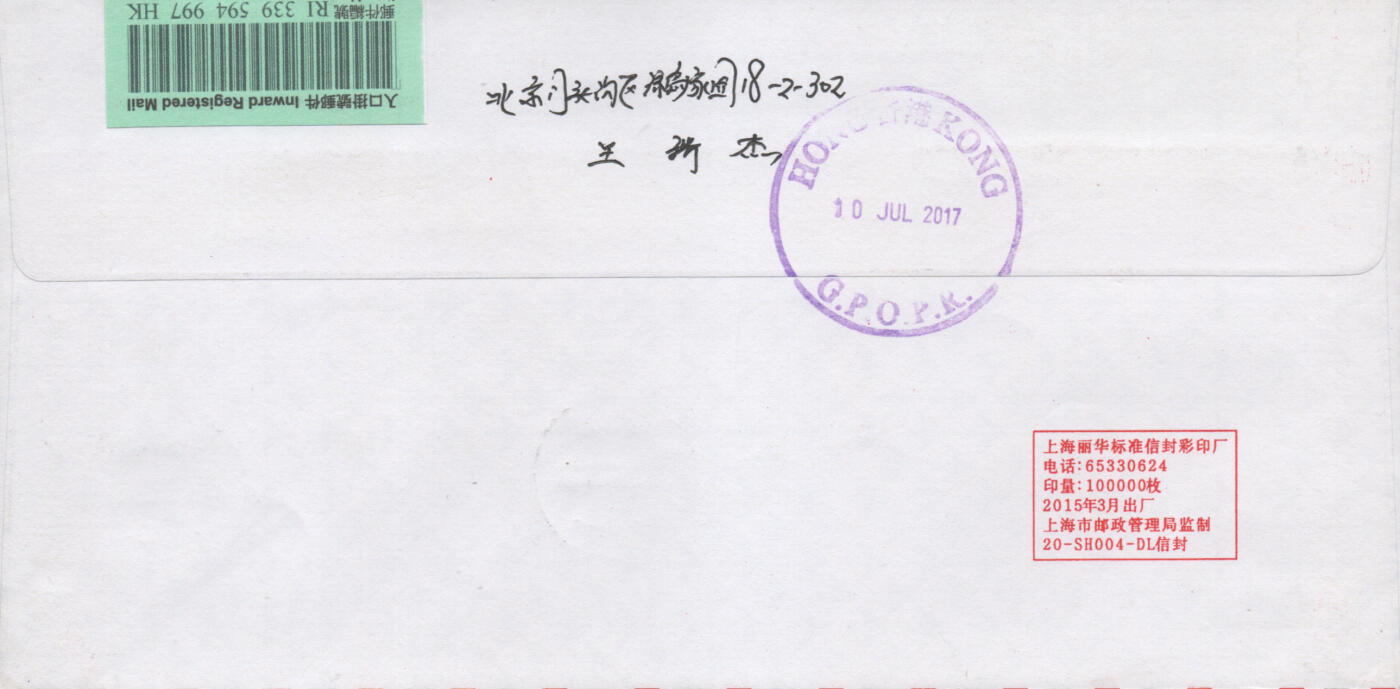 郵件編號 RI 339 594 997 HK
入口掛號郵件 Inward Registered Mail
北京门头沟区绿岛家园18-2-302
王 杰
HONG 香港 KONG
10 JUL 2017
G.P.O.P.R.
上海丽华标准信封彩印厂
电话:65330624
印量:100000枚
2015年3月出厂
上海市邮政管理局监制
20-SH004-DL信封